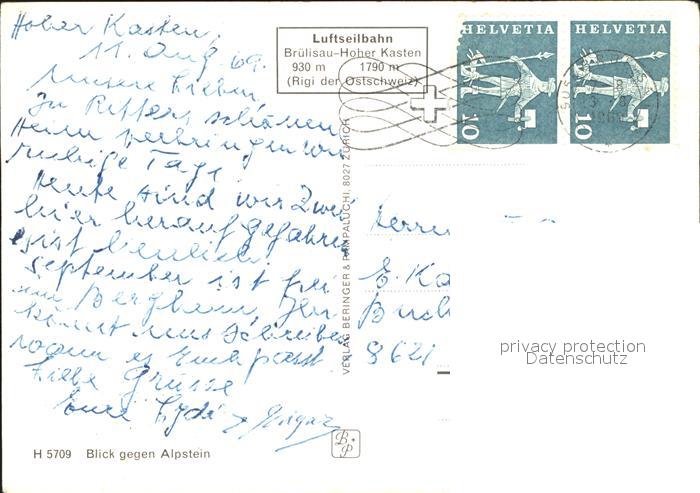 Hoher Kasten,
11. Aug. 69.
Unsere Lieben
In schönen
Heim verbringen wir
ruhige Tage,
Heute sind wir Zwei
hier herauf gefahren
es ist herrlich.
September ist frei
im Bergheim, Ihr
könnt uns schreiben
wann es Euch passt.
Liebe Grüsse
Eure
H 5709 Blick gegen Alpstein
Luftseilbahn
Brülisau–Hoher Kasten
930 m 1790 m
(Rigi der Ostschweiz)
HELVETIA HELVETIA
10 10
VERLAG BERINGER & PAMPALUCHI, 8027 ZÜRICH
Herrn
E. Ka
Buch
8621
privacy protection
Datenschutz
B+P